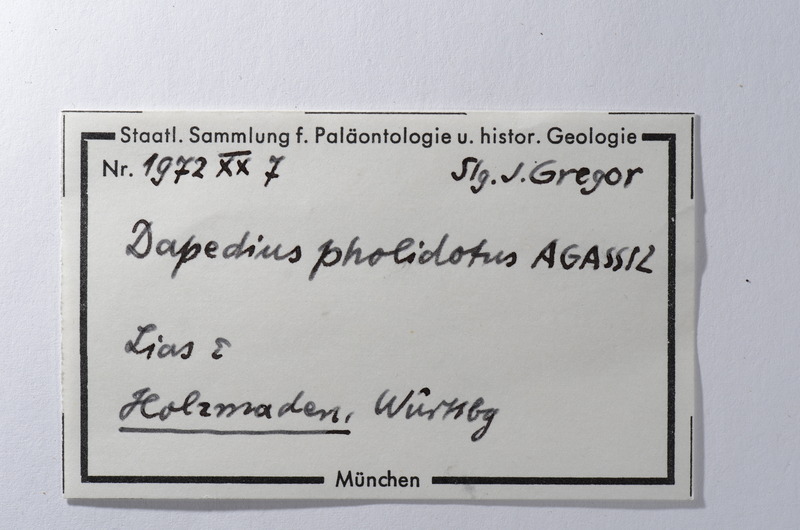 Staatl. Sammlung f. Paläontologie u. histor. Geologie
Nr. 1972 XX 7 Slg. J. Gregor
Dapedius pholidotus AGASSIZ
Lias ε
Holzmaden, Württbg
München